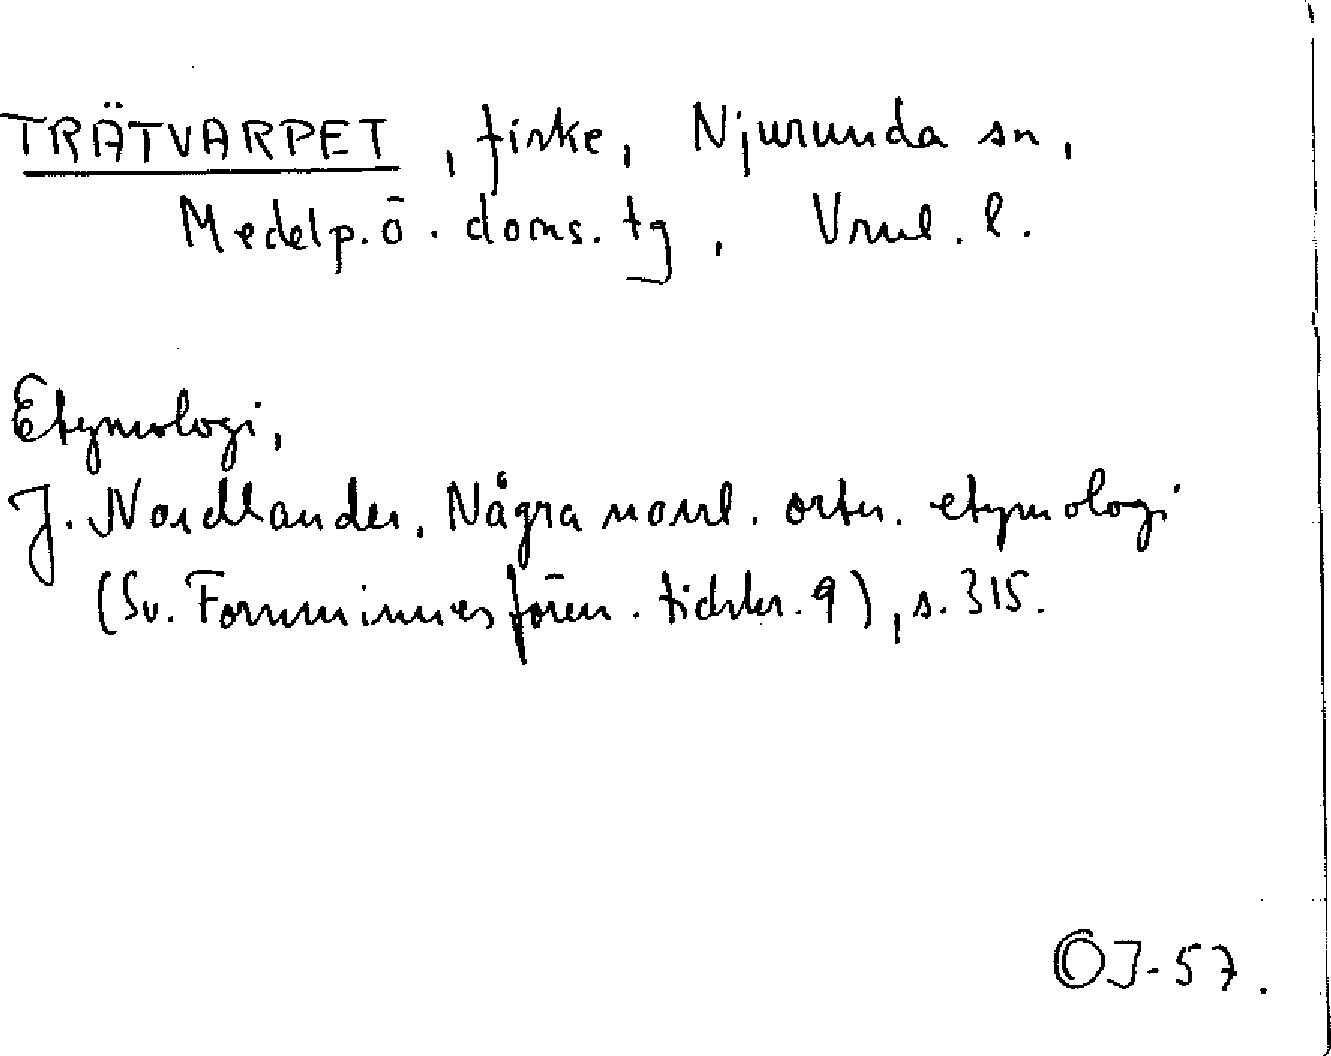 TRÄTVARPET, fiske, Njurunda sn,
Medelp. ö. doms. tg, Vrnl. l.
Etymologi,
J. Nordlander, Några norrl. ortn. etymologi
(Sv. Fornminnesfören. tidskr. 9), s. 315.
OJ-57.